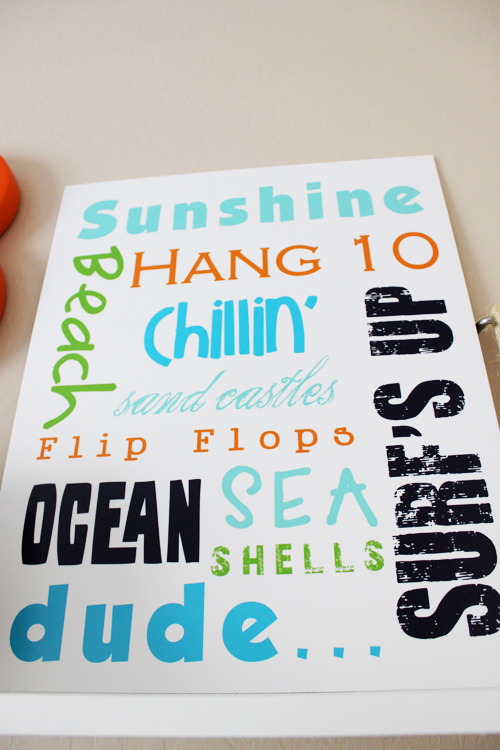 Sunshine
Beach
HANG 10
Chillin'
sand castles
Flip Flops
SURF'S UP
OCEAN
SEA
SHELLS
dude...